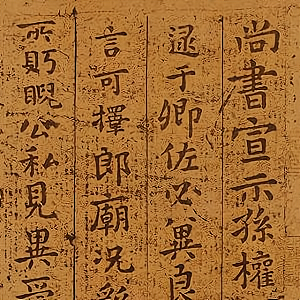 尚書宣示孫權
逮于卿佐必冀良
言可擇郎廟況
所眄睨公私見異